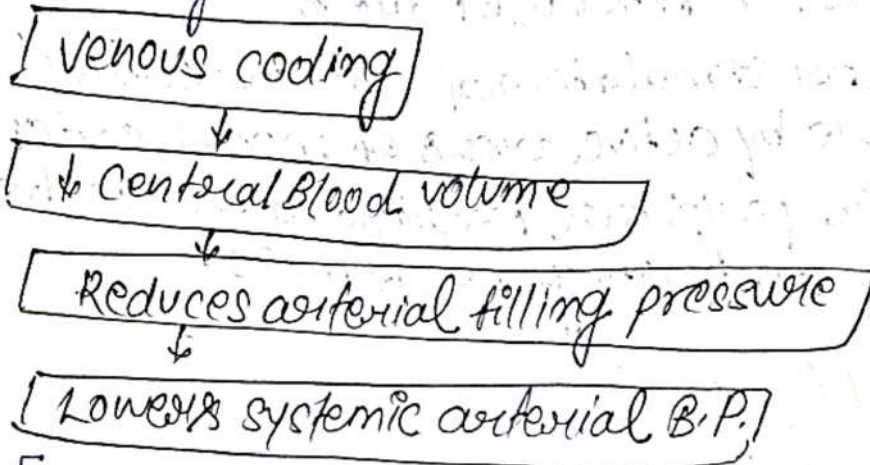 venous coding
↓
↓ Central Blood volume
↓
Reduces arterial filling pressure
↓
Lowers systemic arterial B.P.